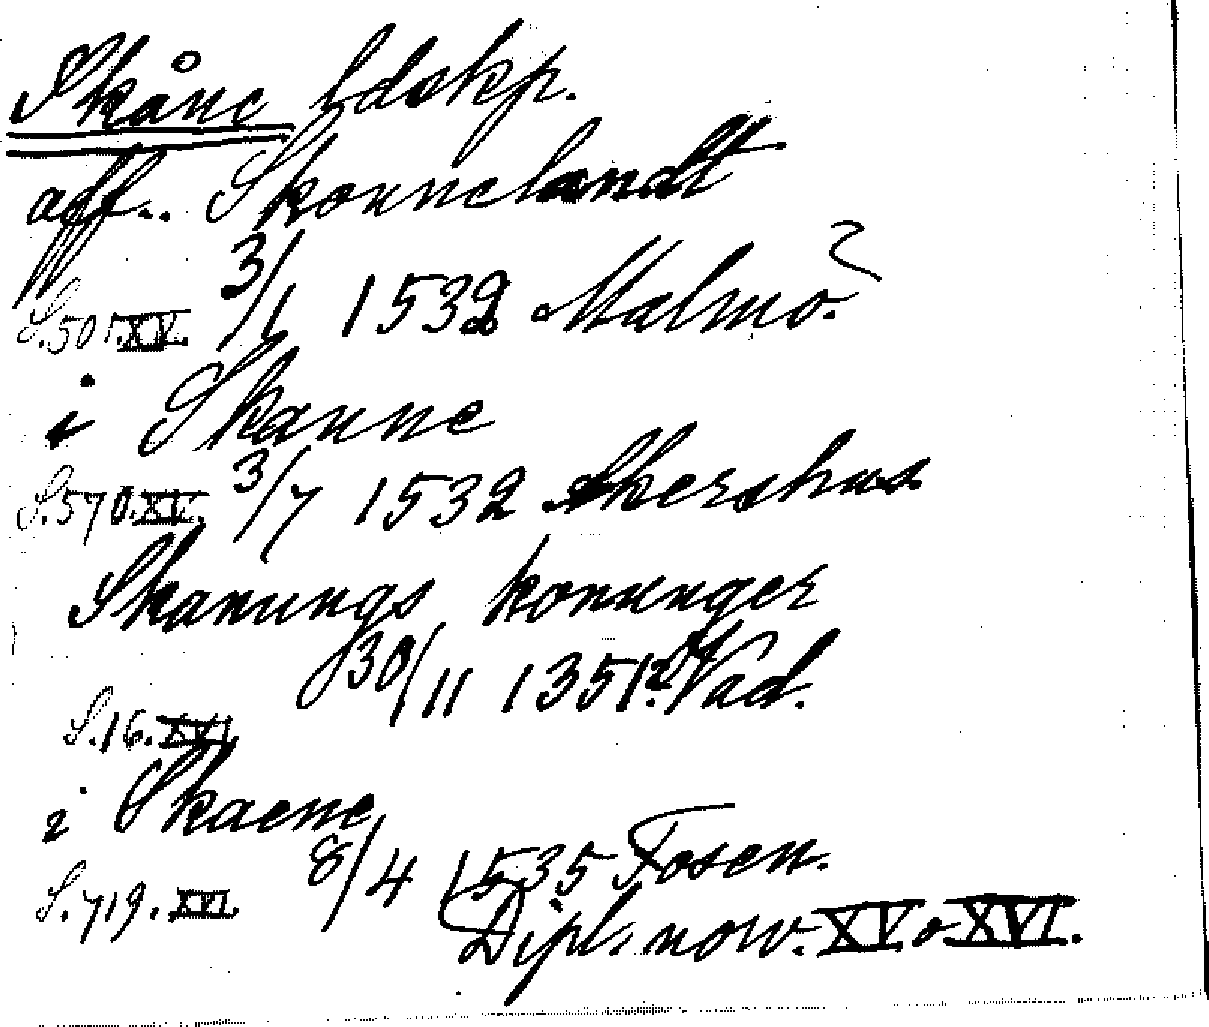 Skåne ldskp.
aff.. Skonnelandt
S.501.XV. 3/1 1532 Malmö?
i Skanne
S.570.XV. 3/7 1532 Akershus
Skanungs konunger
30/11 1351. Vad.
S.16.XVI
i Skaene
S.719.XVI. 8/4 1535 Tosen.
Dipl. norv. XV o XVI.